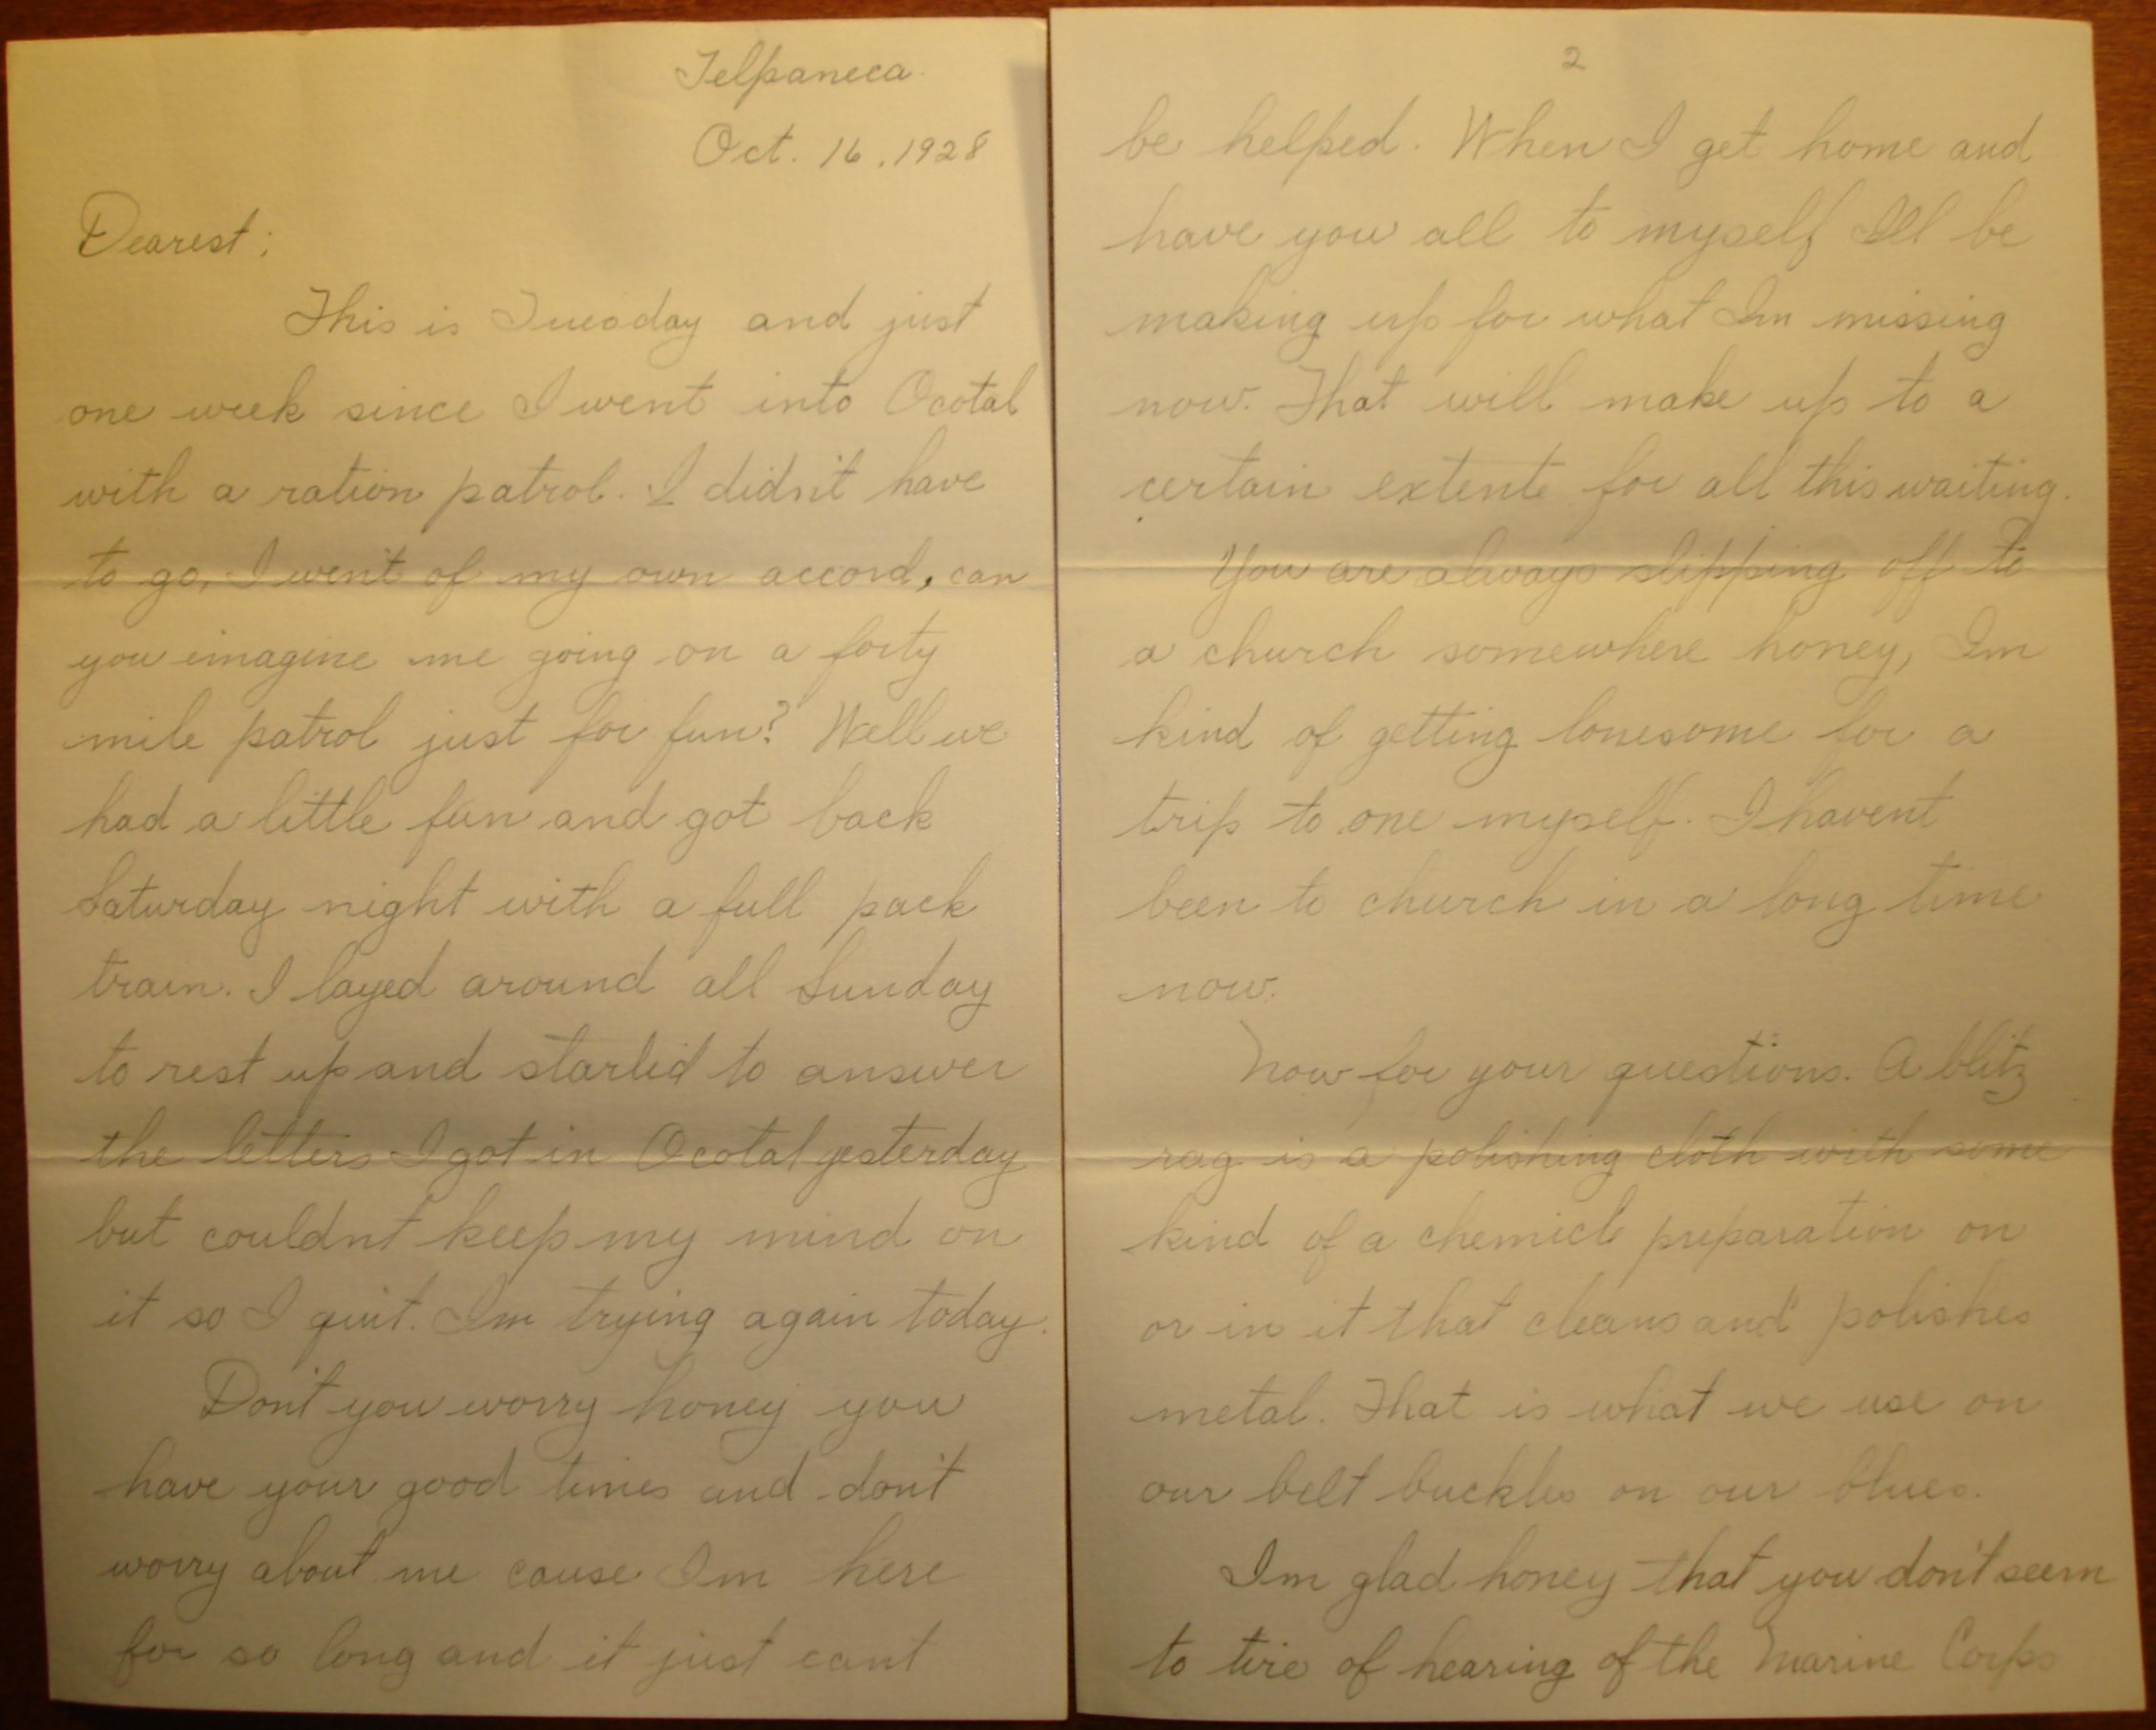 Telpaneca.
Oct. 16, 1928
Dearest;
This is Tuesday and just
one week since I went into Ocotal
with a ration patrol. I didn't have
to go, I went of my own accord, can
you imagine me going on a forty
mile patrol just for fun? Well we
had a little fun and got back
Saturday night with a full pack
train. I layed around all Sunday
to rest up and started to answer
the letters I got in Ocotal yesterday
but couldnt keep my mind on
it so I quit. Im trying again today.
Don't you worry honey you
have your good times and don't
worry about me cause Im here
for so long and it just cant
2
be helped. When I get home and
have you all to myself Ill be
making up for what Im missing
now. That will make up to a
certain extente for all this waiting.
You are always slipping off to
a church somewhere honey, Im
kind of getting lonesome for a
trip to one myself. I havent
been to church in a long time
now.
Now for your questions. A blitz
rag is a polishing cloth with some
kind of a chemicle preparation on
or in it that cleans and polishes
metal. That is what we use on
our belt buckles on our blues.
Im glad honey that you don't seem
to tire of hearing of the Marine Corps